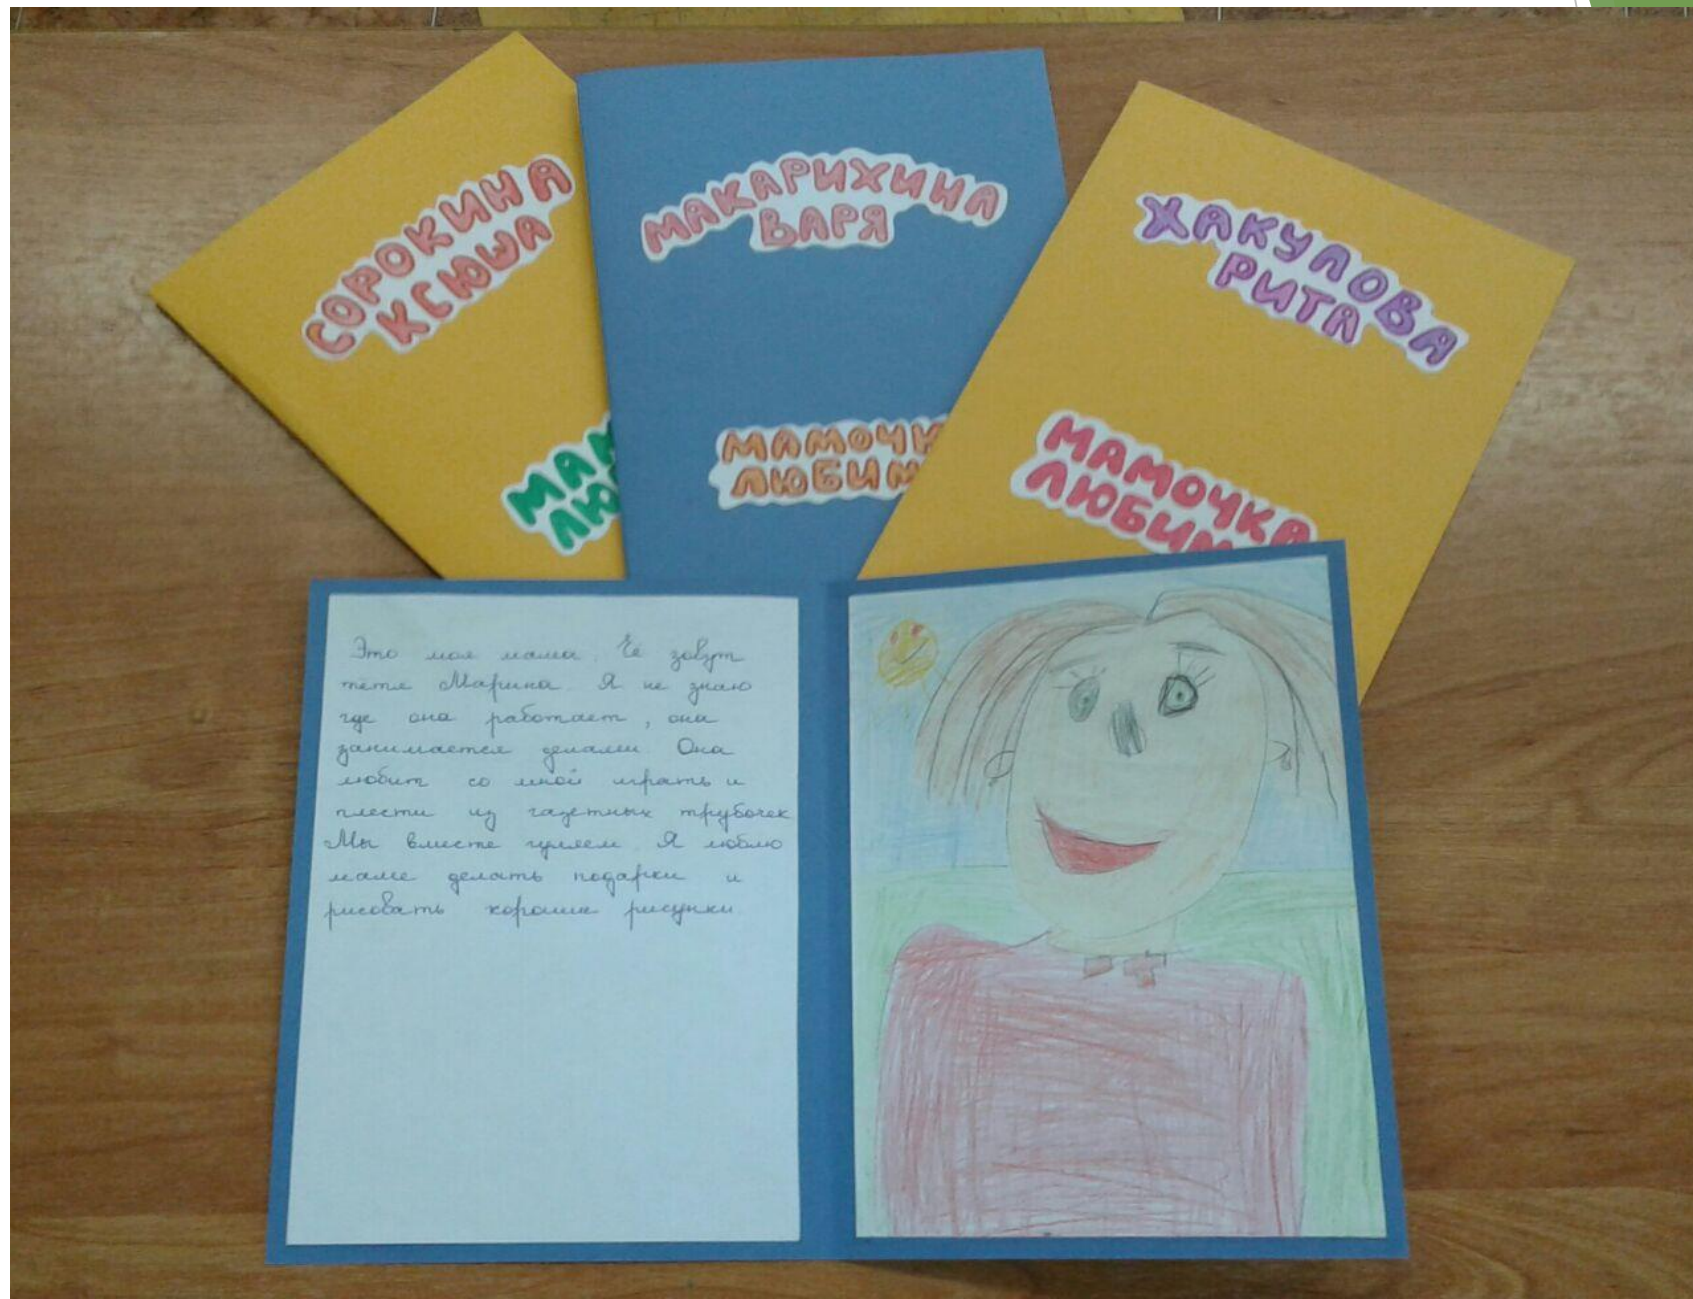 СОРОКИНА
КСЮША
МАМ
ЛЮ
МАКАРИХИНА
ВАРЯ
МАМОЧК
ЛЮБИМ
ХАКУЛОВА
РИТА
МАМОЧКА
ЛЮБИМ
Это моя мама. Её зовут
тётя Марина. Я не знаю
где она работает, она
занимается делами. Она
любит со мной играть и
плести из газетных трубочек
Мы вместе гуляем. Я люблю
маме делать подарки и
рисовать хорошие рисунки